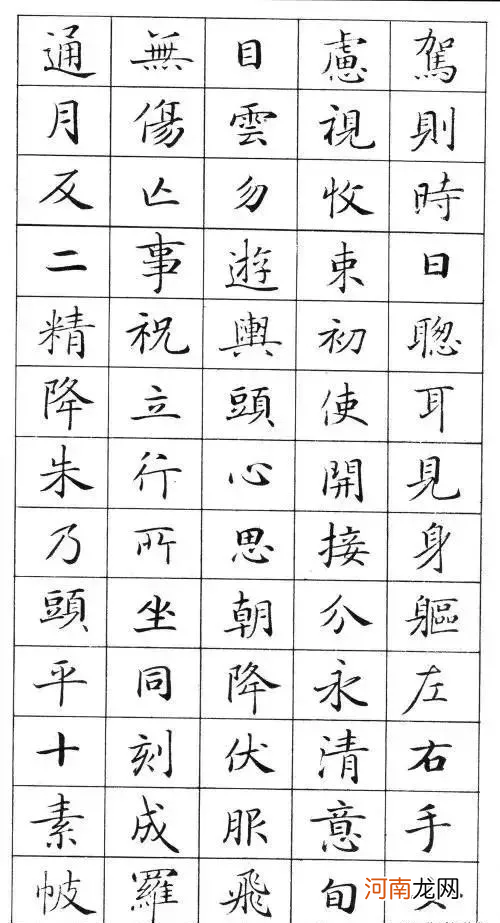 駕則時日聰耳見身軀左右手
慮視收束初使開接分永清意旬
目雲勿遊輿頭心思朝降伏服飛
無傷亡事祝立行所坐同刻成羅
通月反二精降朱乃頭平十素帔
河南龙网.